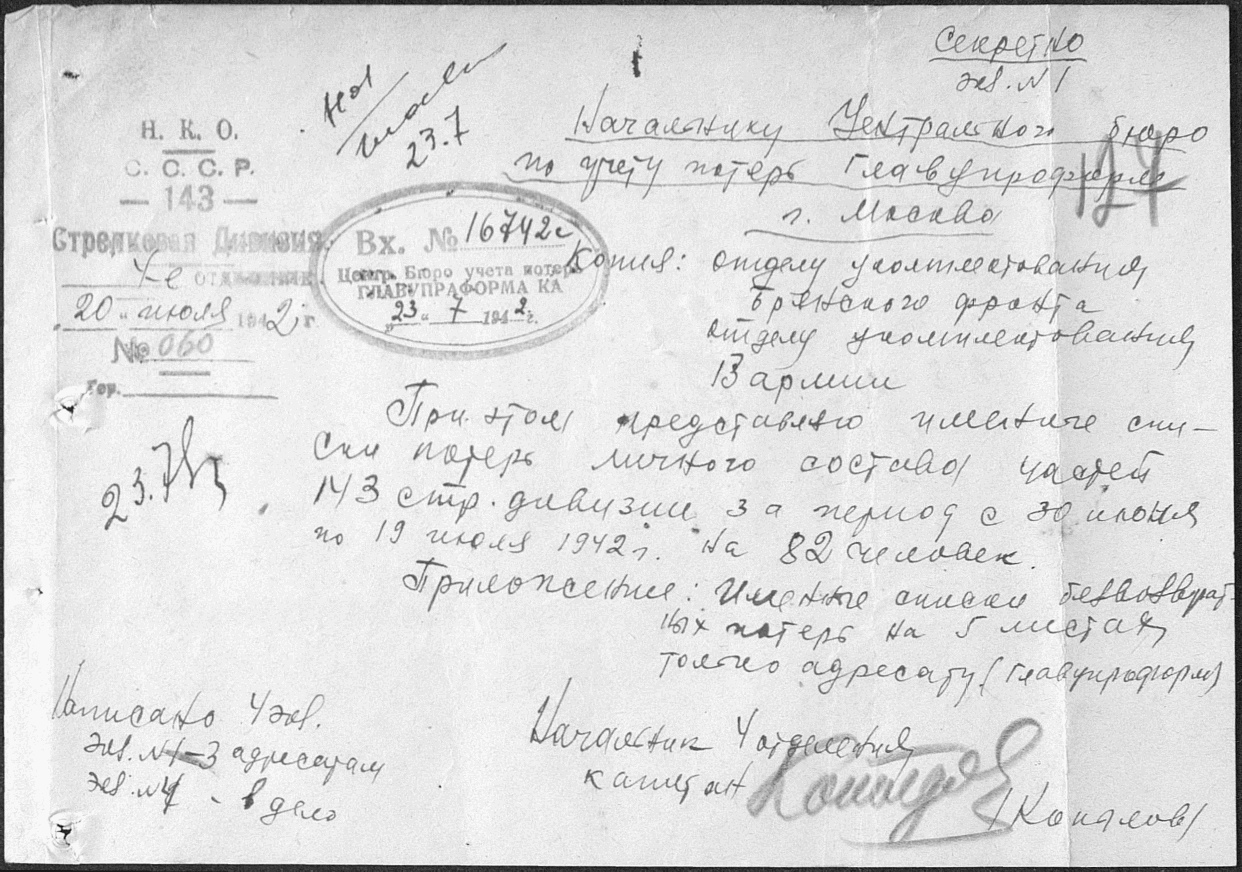 Секретно
экз. №1
Н. К. О.
С. С. С. Р.
— 143 —
Стрелковая Дивизия
4-е отделение
"20" июля 1942 г.
№ 060
Гор.
23.7
Вх. № 16742с
Центр. Бюро учета потерь
ГЛАВУПРАФОРМА КА
"23" 7 1942 г.
Начальнику Центрального бюро
по учету потерь Главупроформа
г. Москва
124
Копия: отделу укомплектования
Брянского фронта
отделу укомплектования
13 армии
При этом представляю именные спи-
ски потерь личного состава частей
143 стр. дивизии за период с 30 июня
по 19 июля 1942 г. на 82 человек.
Приложение: Именные списки безвозврат-
ных потерь на 5 листах
только адресату (Главупроформ)
23.7
Написано 4 экз.
экз. №1-3 адресатам
экз. №4 - в дело
Начальник 4 отделения
капитан
/Копалов/